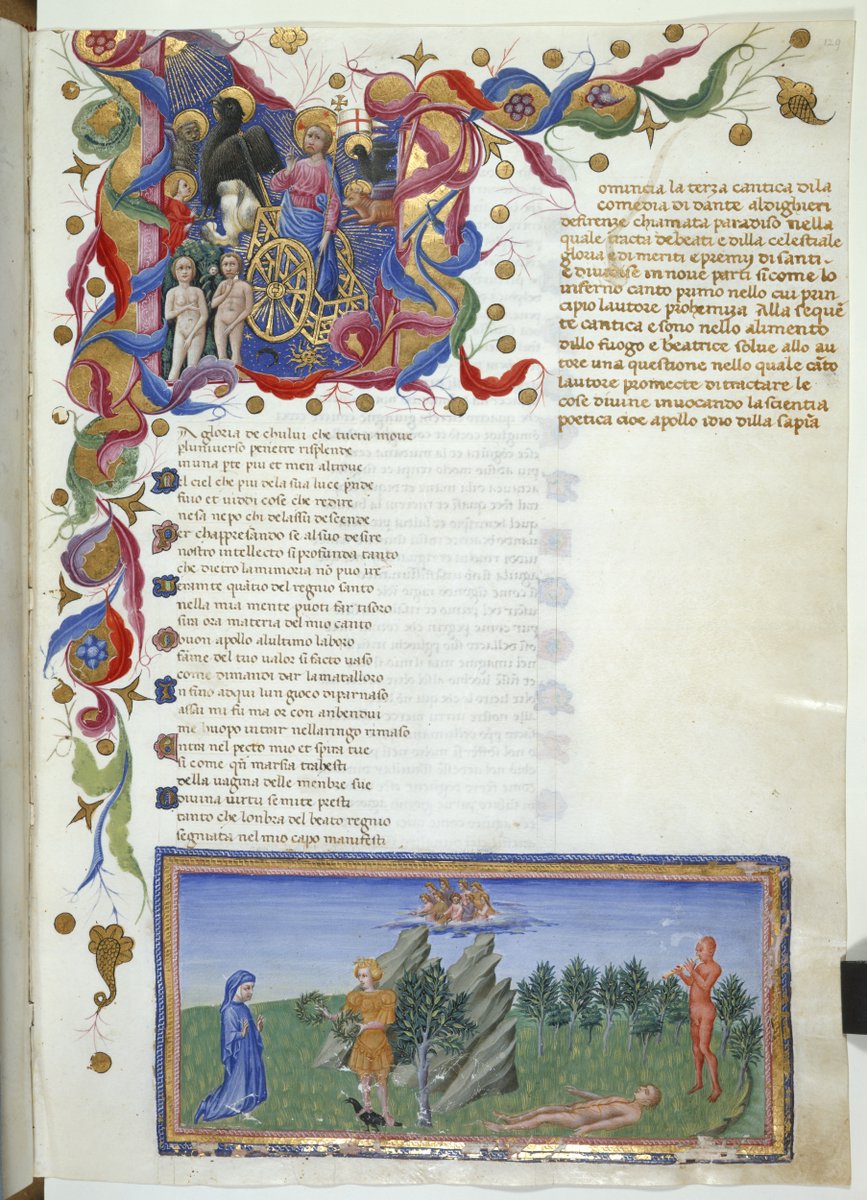 129
omincia la terza cantica di la
comedia di dante aldighieri
de firenze chiamata paradiso nella
quale tracta de beati e di lla celestiale
gloria e di meriti e premii di santi
E divisase in nove parti si come lo
inferno canto primo nello cui prin
cipio lautore prohemiza alla sequē
te cantica e sono nello alimento
dillo fuogo e beatrice solve allo au
tore una questione nello quale cāto
lautore promecte di tractare le
cose divine invocando la scientia
poetica cioe apollo idio dilla sapīa
A gloria de chului che tuctu move
pluniverso penetre risplende
in una pte piu et men altrove
Nel ciel che piu dela sua luce pnde
fuio et viddi cose che redire
ne sa ne po chi delassu descende
Per chappresando se al suo desire
nostro intellecto si profunda tanto
che dietro la mimoria nō puo ire
Verante quātio del regnio santo
nella mia mente puoti far tisoro
sira ora materia del mio canto
O buon apollo alultimo laboro
fame del tuo valor si facto vaso
come dimandi dar la matalloro
In sino adqui lun gioco di parnaso
assu mi fu ma or con anbendui
me huopo intrar nellaringo rimaso
Entra nel pecto mio et spira tue
si come qñ marsia trahesti
della vagina delle menbre sue
O divina virtu se mite presti
tanto che lonbra del beato regnio
segniata nel mio capo manifesti